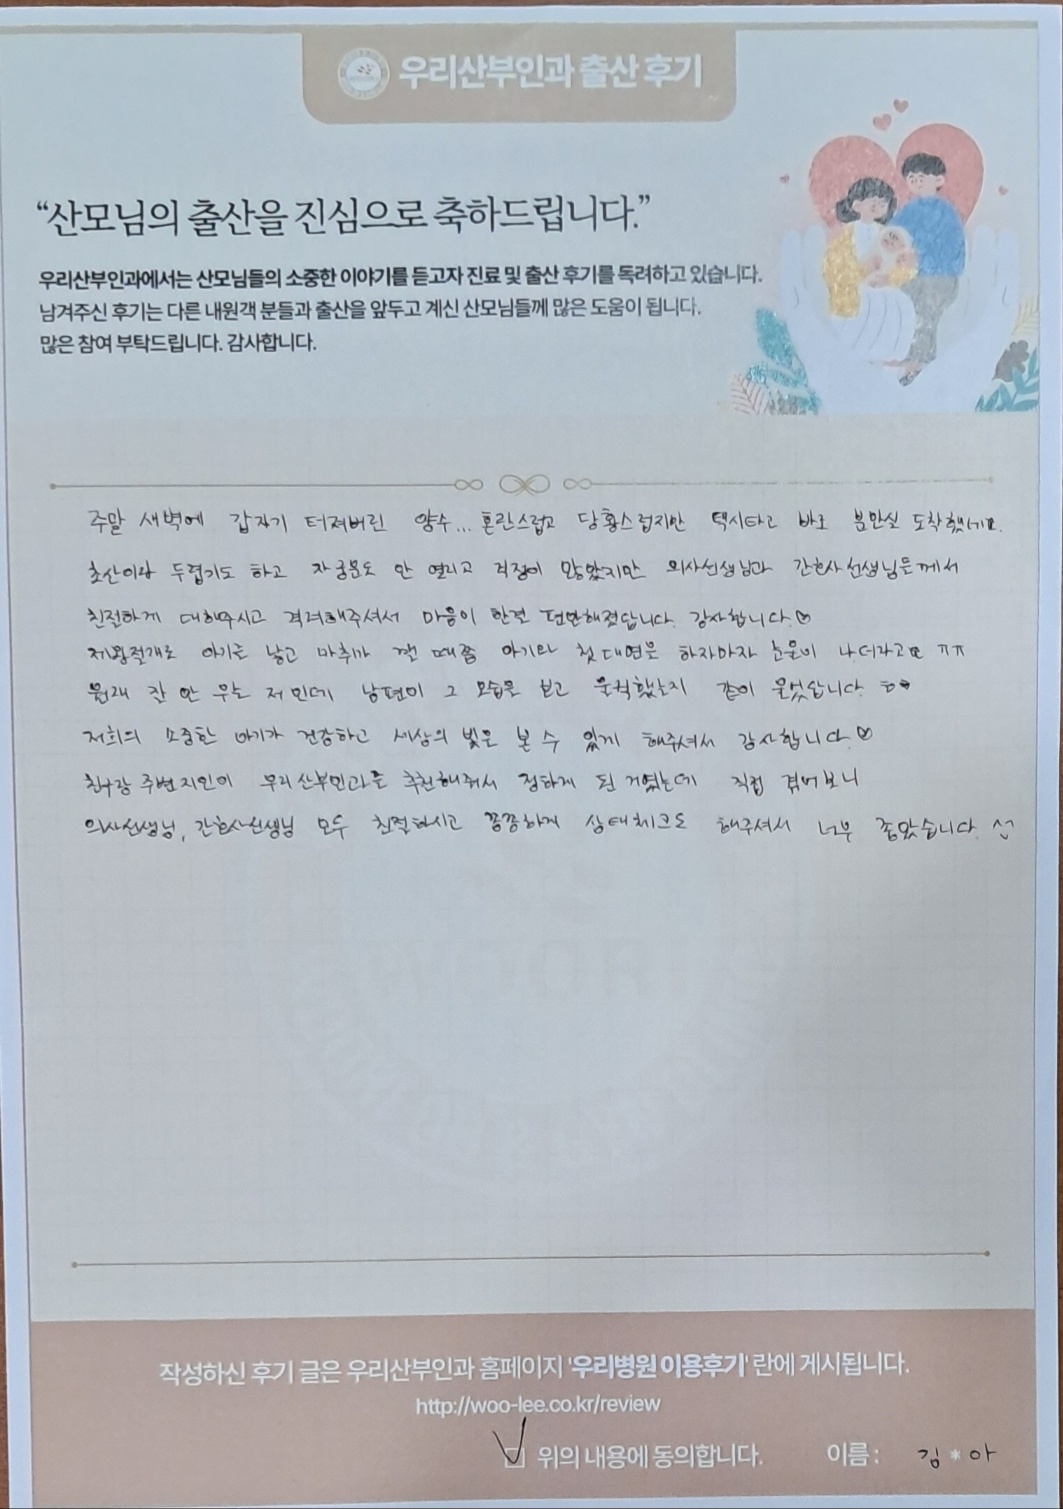 우리산부인과 출산 후기
“산모님의 출산을 진심으로 축하드립니다.”
우리산부인과에서는 산모님들의 소중한 이야기를 듣고자 진료 및 출산 후기를 독려하고 있습니다.
남겨주신 후기는 다른 내원객 분들과 출산을 앞두고 계신 산모님들께 많은 도움이 됩니다.
많은 참여 부탁드립니다. 감사합니다.
주말 새벽에 갑자기 터져버린 양수... 혼란스럽고 당황스럽지만 택시타고 바로 분만실 도착했네요.
초산이라 두렵기도 하고 자궁문도 안 열리고 걱정이 많았지만 의사선생님과 간호사선생님들께서
친절하게 대해주시고 격려해주셔서 마음이 한결 편안해졌답니다. 감사합니다.♡
제왕절개로 아기를 낳고 마취가 깰 때쯤 아기와 첫 대면을 하자마자 눈물이 나더라고요 ㅠㅠ
원래 잘 안 우는 저인데 남편이 그 모습을 보고 울컥했는지 같이 울었습니다.
저희의 소중한 아기가 건강하고 세상의 빛을 볼 수 있게 해주셔서 감사합니다.♡
친구랑 주변지인이 우리산부인과를 추천해줘서 정하게 된 거였는데 직접 겪어보니
의사선생님, 간호사선생님 모두 친절하시고 꼼꼼하게 상태체크도 해주셔서 너무 좋았습니다. ^^
작성하신 후기 글은 우리산부인과 홈페이지 '우리병원 이용후기' 란에 게시됩니다.
http://woo-lee.co.kr/review
위의 내용에 동의합니다. 이름 : 김*아